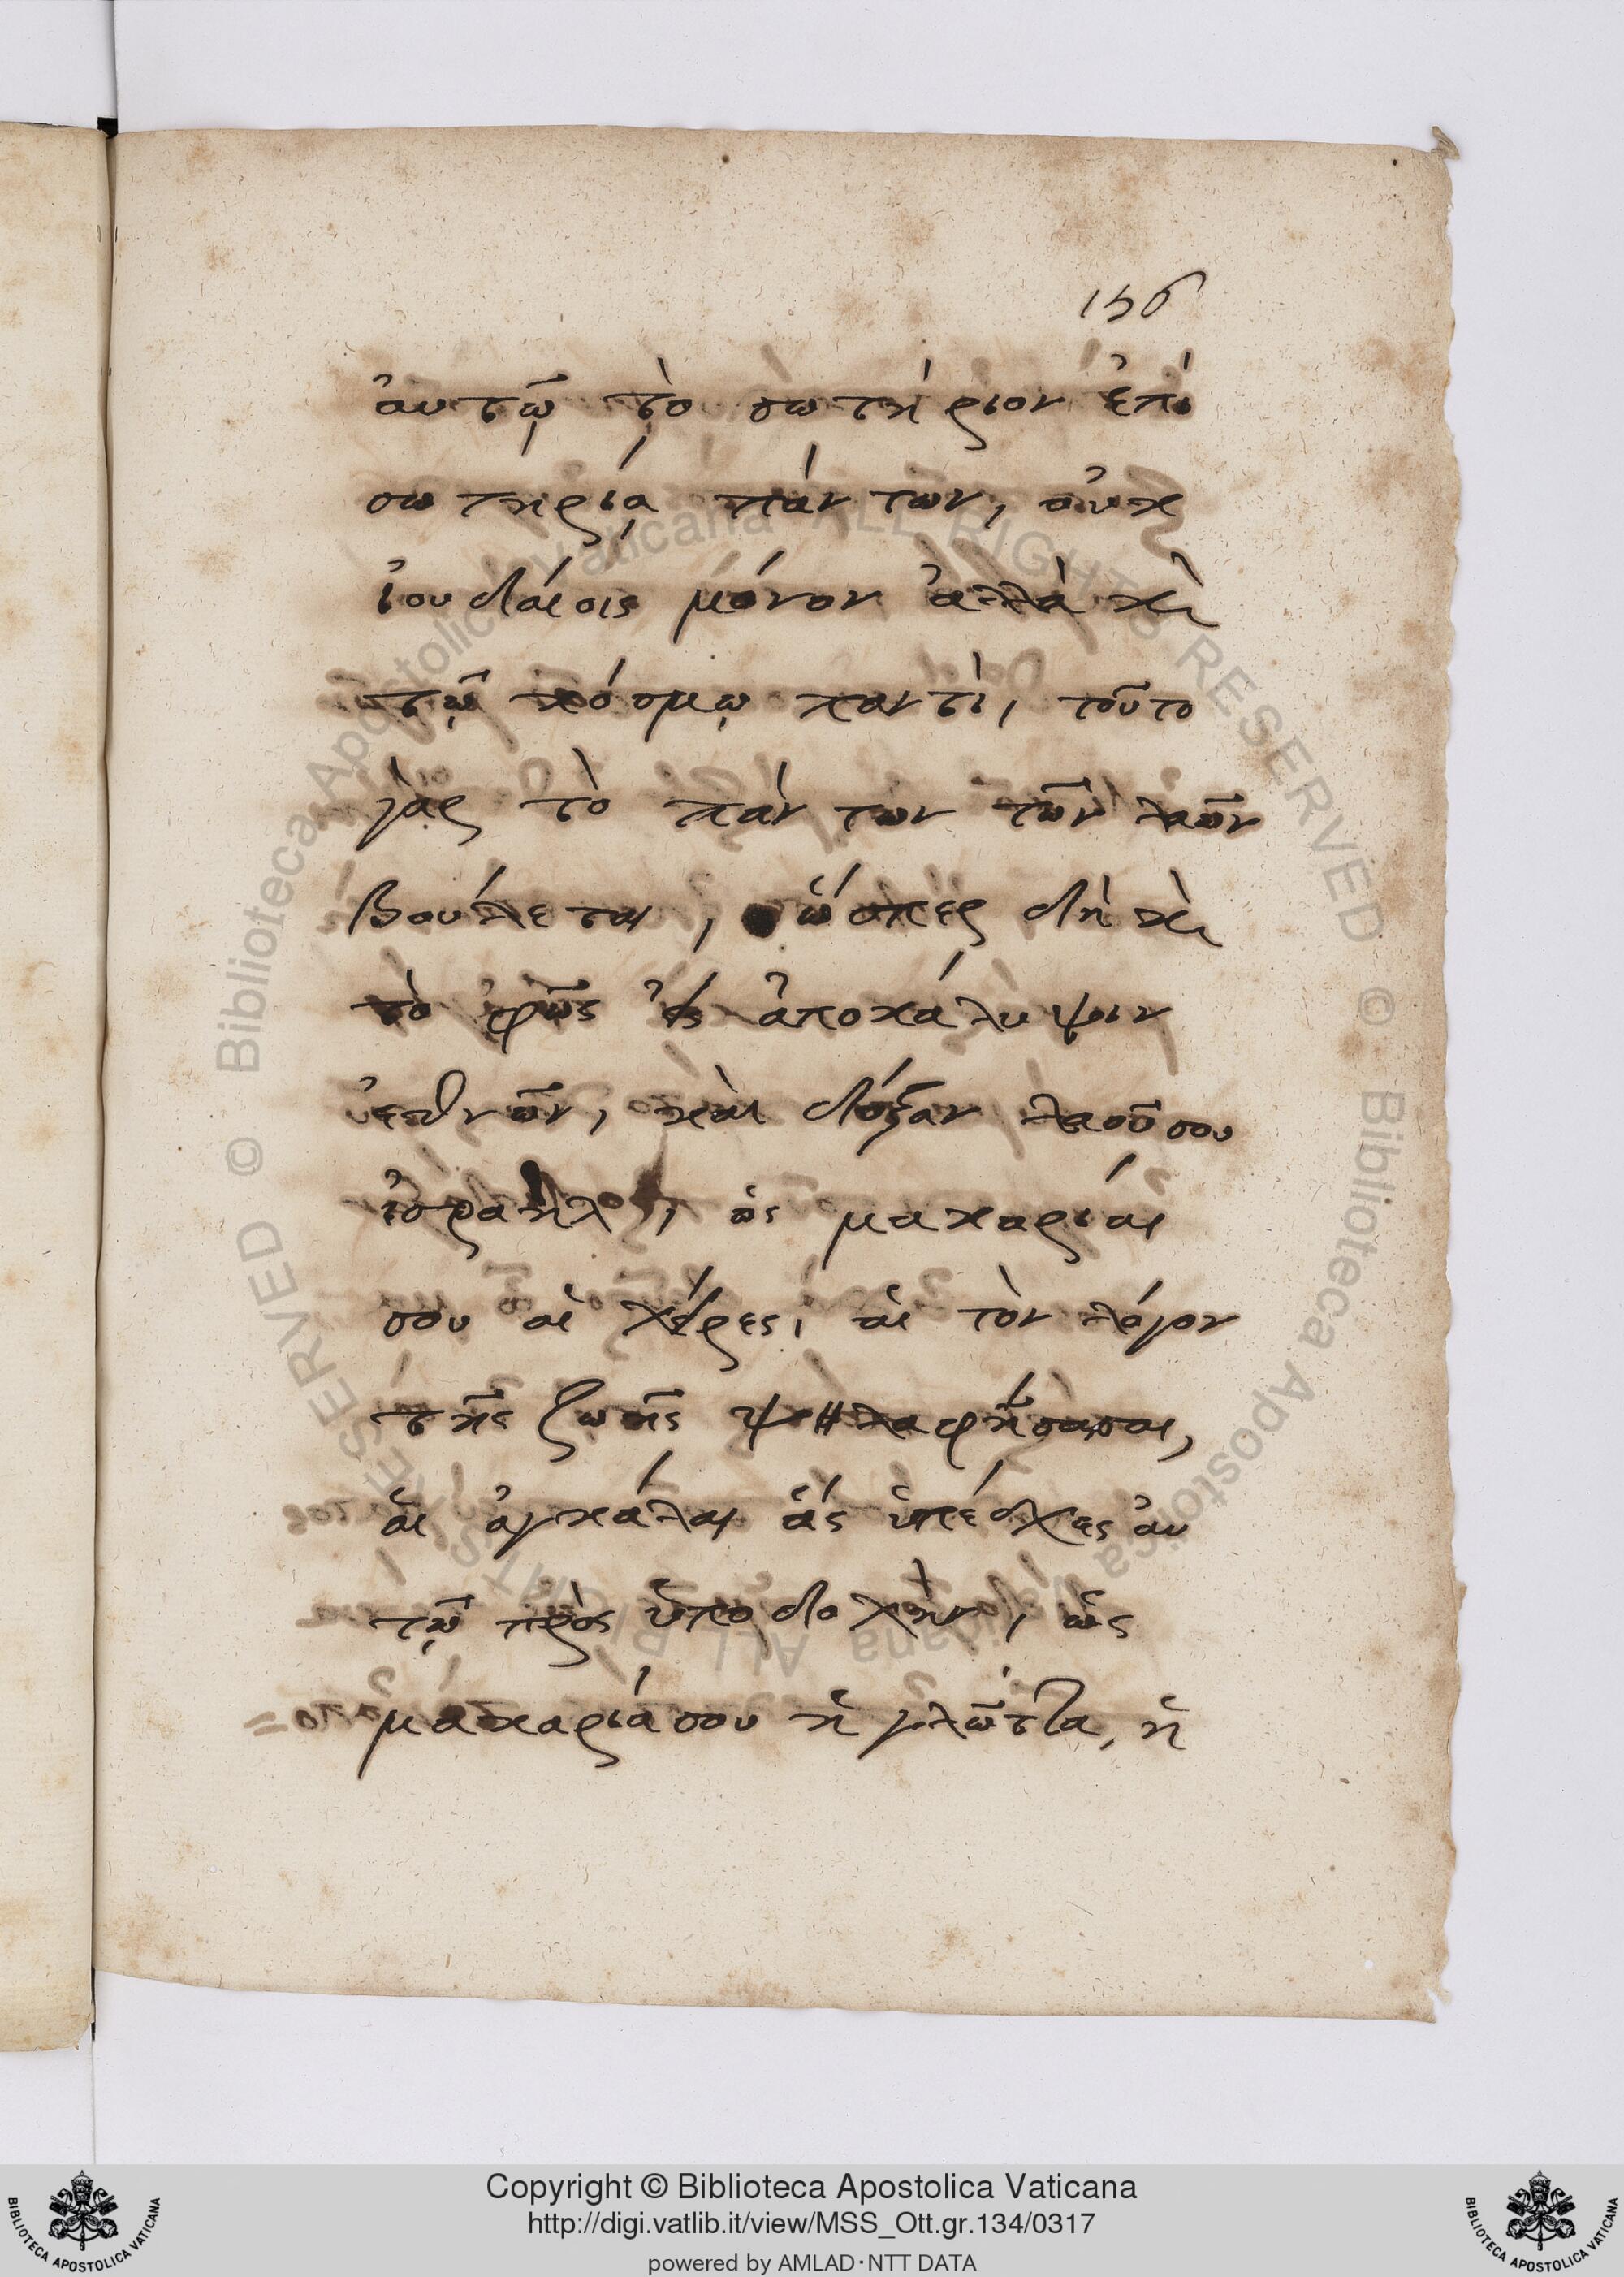 156
ἀυτῷ τὸ σωτήριον ἐπὶ
σωτηρίᾳ πάντων, οὐχ
ἰουδαίοις μόνον ἀλλὰ κὶ
τῷ κόσμῳ παντὶ, τοῦτο
γὰρ τὸ πάντων τῶν λαῶν
βούλεται, ὥσπερ δὴ κὶ
τὸ φῶς εἰς ἀποκάλυψιν
ἐθνῶν, καὶ δόξαν λαοῦ σου
ἰσραὴλ, ὡς μακαρίαι
σου αἱ χεῖρες, αἱ τὸν λόγον
τῆς ζωῆς ψηλαφήσασαι,
ἃι ἀγκάλαι ἅς ὑπέσχες ἀυ
τῷ πρὸς ὑποδοχὴν, ὡς
μακαρία σου ἡ γλῶττα, ἡ
Copyright © Biblioteca Apostolica Vaticana
http://digi.vatlib.it/view/MSS_Ott.gr.134/0317
powered by AMLAD·NTT DATA
BIBLIOTECA APOSTOLICA VATICANA
BIBLIOTECA APOSTOLICA VATICANA
© Biblioteca Apostolica Vaticana ALL RIGHTS RESERVED
© Biblioteca Apostolica Vaticana ALL RIGHTS RESERVED